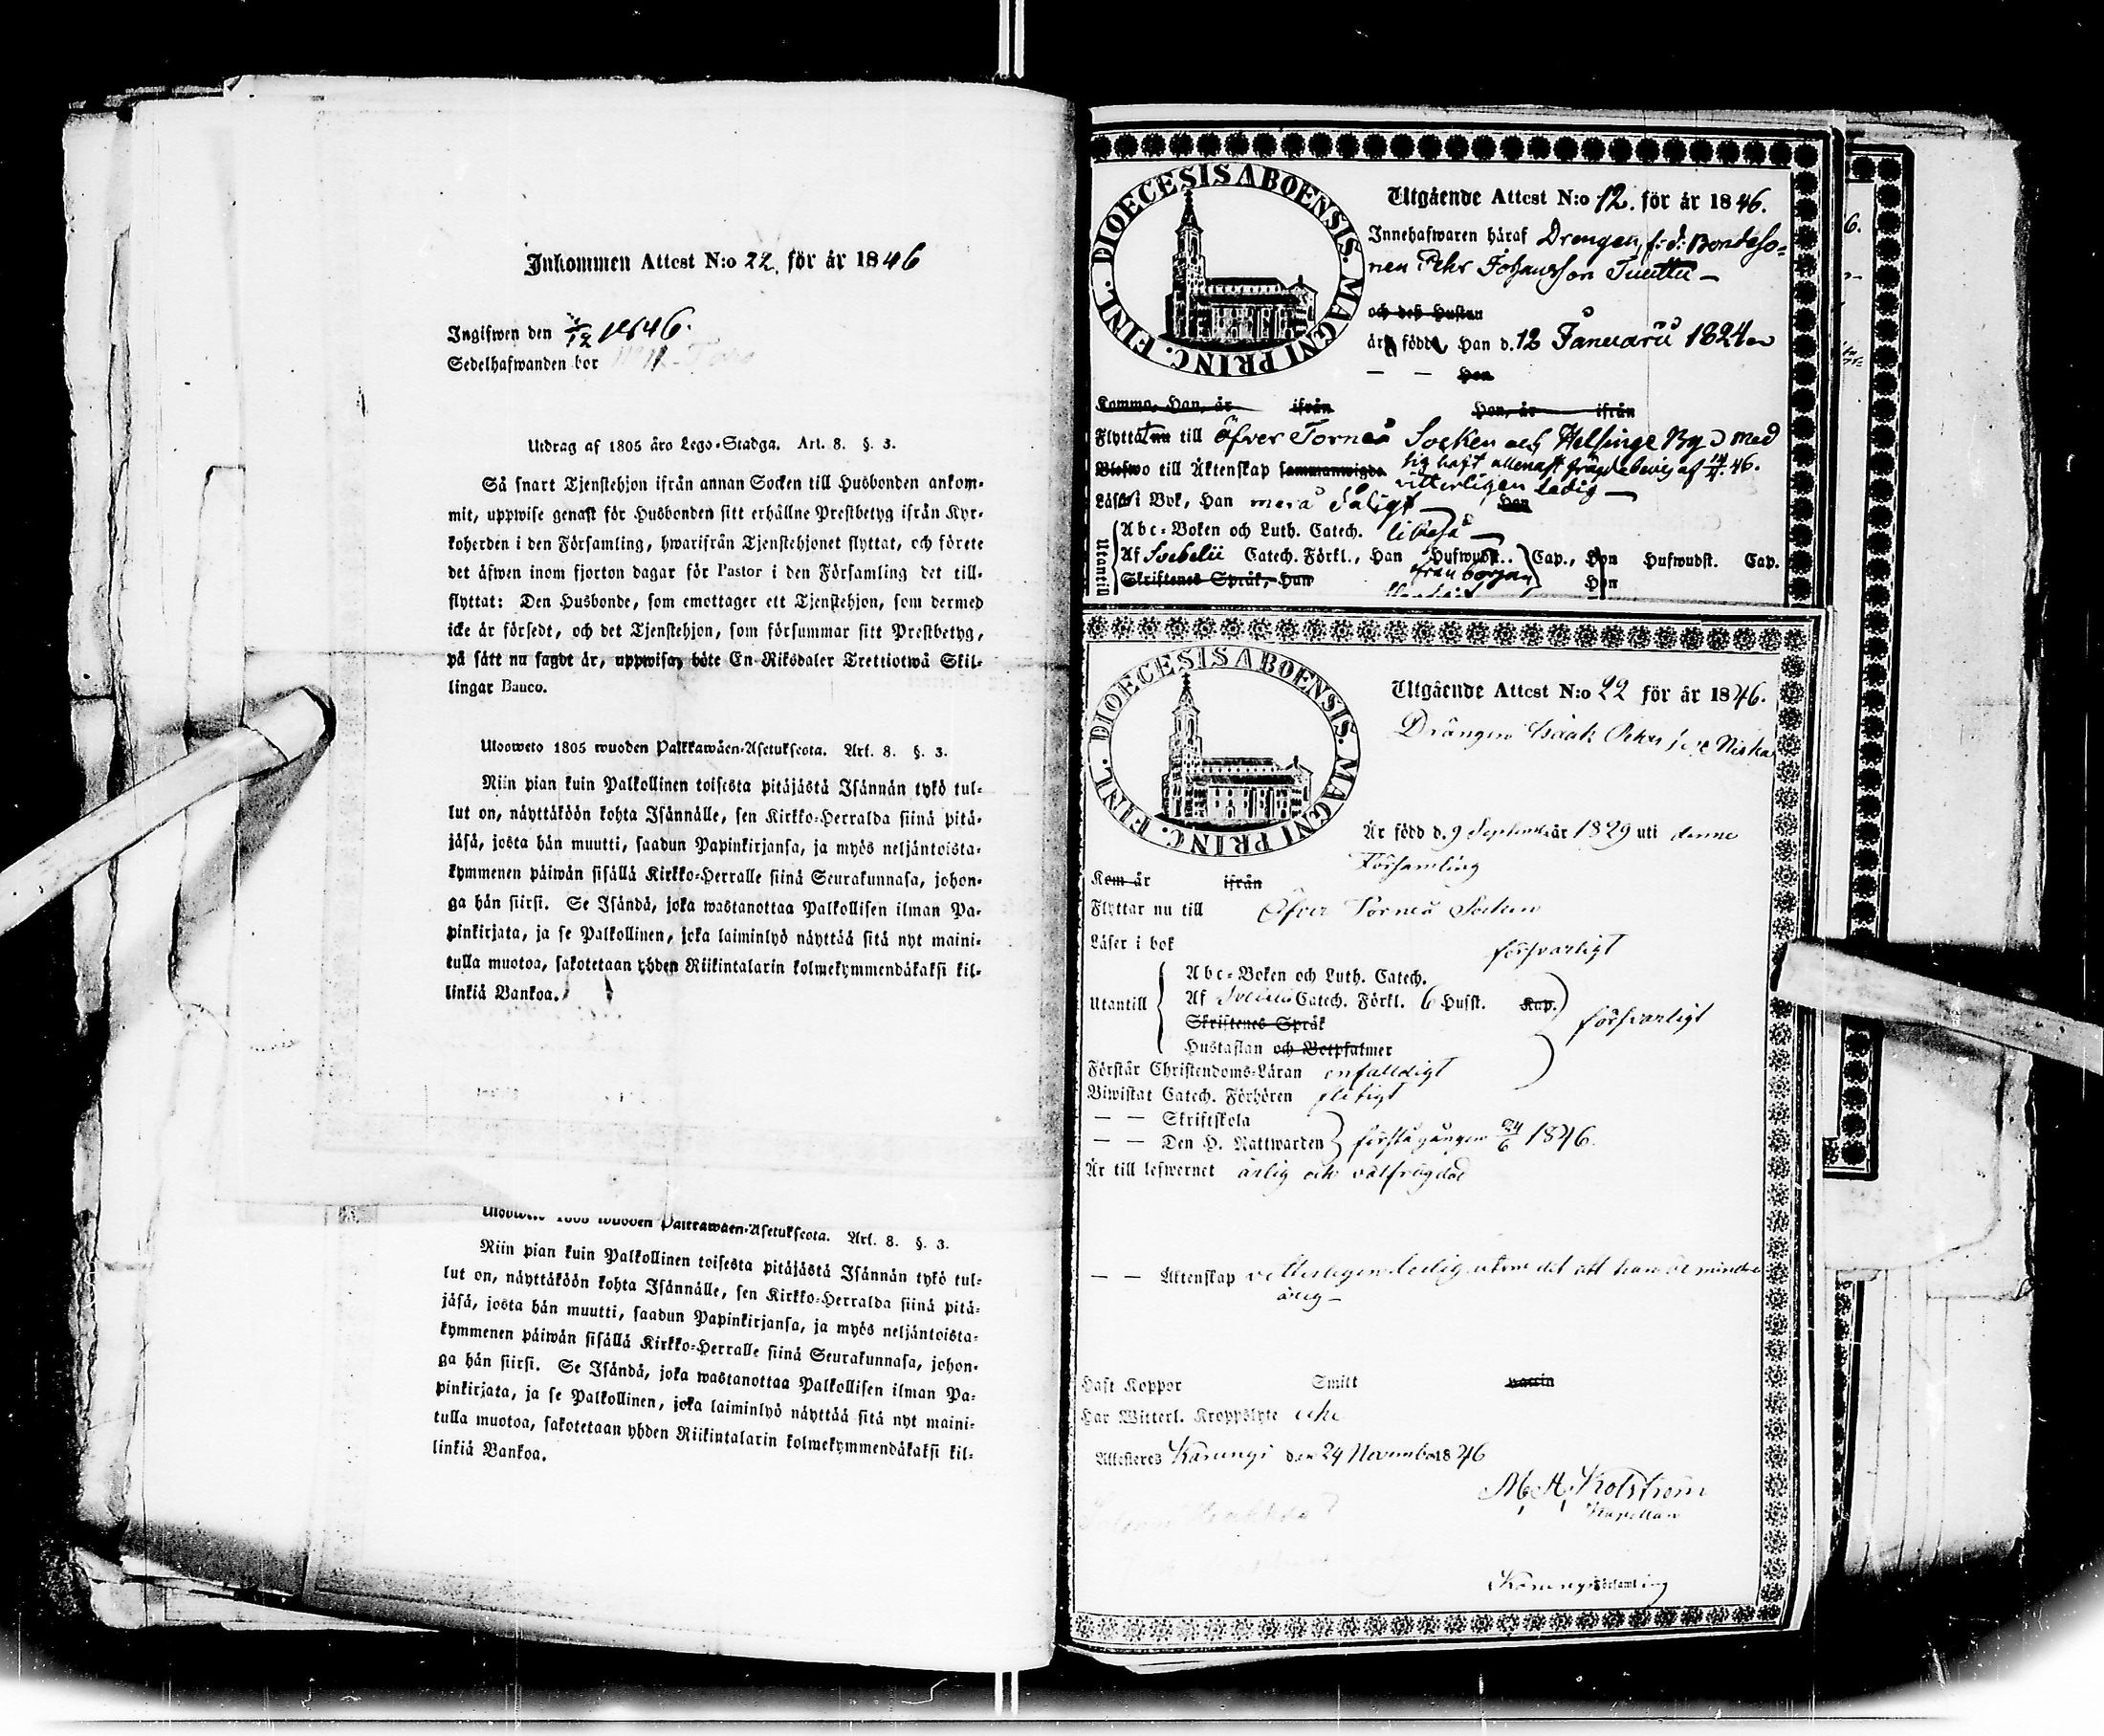 Inkommen Attest N:o 22. för år 1846
Ingifwen den 1/12 1846.
Sedelhafwanden bor
Utdrag af 1805 års Lego-Stadga. Art. 8. §. 3.
Så snart Tjenstehjon ifrån annan Socken till Husbonden ankom-
mit, uppwise genast för Husbonden sitt erhållne Prestbetyg ifrån Kyr-
koherden i den Församling, hwarifrån Tjenstehjonet flyttat, och förete
det äfwen inom fjorton dagar för Pastor i den Församling det till-
flyttat: Den Husbonde, som emottager ett Tjenstehjon, som dermed
icke är försedt, och det Tjenstehjon, som försummar sitt Prestbetyg,
på sätt nu sagdt är, uppwisa, böte En Riksdaler Trettiotwå Skil-
lingar Banco.
Ulosweto 1805 wuoden Palkkawäen-Asetuksesta. Art. 8. §. 3.
Niin pian kuin Palkollinen toisesta pitäjästä Isännän tykö tul-
lut on, näyttäköön kohta Isännälle, sen Kirkko-Herralda siinä pitä-
jäsä, josta hän muutti, saadun Papinkirjansa, ja myös neljäntoista-
kymmenen päiwän sisällä Kirkko-Herralle siinä Seurakunnasa, johon-
ga hän siirsi. Se Isändä, joka wastanottaa Palkollisen ilman Pa-
pinkirjata, ja se Palkollinen, joka laiminlyö näyttää sitä nyt maini-
tulla muotoa, sakotetaan yhden Riikintalarin kolmekymmendäkaksi kil-
linkiä Bankoa.
Ulosweto 1805 wuoden Palkkawäen-Asetuksesta. Art. 8. §. 3.
Niin pian kuin Palkollinen toisesta pitäjästä Isännän tykö tul-
lut on, näyttäköön kohta Isännälle, sen Kirkko-Herralda siinä pitä-
jäsä, josta hän muutti, saadun Papinkirjansa, ja myös neljäntoista-
kymmenen päiwän sisällä Kirkko-Herralle siinä Seurakunnasa, johon-
ga hän siirsi. Se Isändä, joka wastanottaa Palkollisen ilman Pa-
pinkirjata, ja se Palkollinen, joka laiminlyö näyttää sitä nyt maini-
tulla muotoa, sakotetaan yhden Riikintalarin kolmekymmendäkaksi kil-
linkiä Bankoa.
DIOECESIS ABOENSIS. MAGNI PRINC. FINL.
Utgående Attest N:o 12. för år 1846.
Innehafwaren häraf Drengen, f. d. Bondeso-
nen Pehr Johansson
och dess Hustru
är född, Han d. 12 Januarii 1824
— — Hon
Komma, Han, år ifrån Hon, år ifrån
Flyttat nu till Öfver Torneå Socken och Helsinge By med
sig haft allenast frägdebevis af 46.
till Äktenskap sammanwigde vitterligen ledig —
Läser i Bok, Han mera dåligt Hon
Utantill
Abc-Boken och Luth. Catech. likaså
Af Svebelii Catech. Förkl., Han Hufwudst. Cap., Hon Hufwudst. Cap.
från början
Skriftenes Språk, Han Hon
DIOECESIS ABOENSIS. MAGNI PRINC. FINL.
Utgående Attest N:o 22 för år 1846.
Drängen Isaak Niska
Är född d. 9 September år 1829 uti denne
Församling
Kom år ifrån
Flyttar nu till Öfver Torneå Socken
Läser i bok försvarligt
Utantill
Abc-Boken och Luth. Catech.
Af Svebelii Catech. Förkl. 6 Husst. Kap.
försvarligt
Skriftenes Språk
Hustaflan och Botpsalmer
Förstår Christendoms-Läran enfalldigt
Biwistat Catech. Förhören flitigt
— — Skriftskola
— — Den H. Nattwarden första gången 24/6 1846.
Är till lefwernet ärlig och välfrägdad
— — Äktenskap vitterligen ledig utom det att han är minder
årig —
Haft Koppor Smitt vaccin
Har Witterl. Kroppslyte icke
Attesteres Karungi den 24 November 1846
M. A. Kolström
Kapellan
Karungi Församling